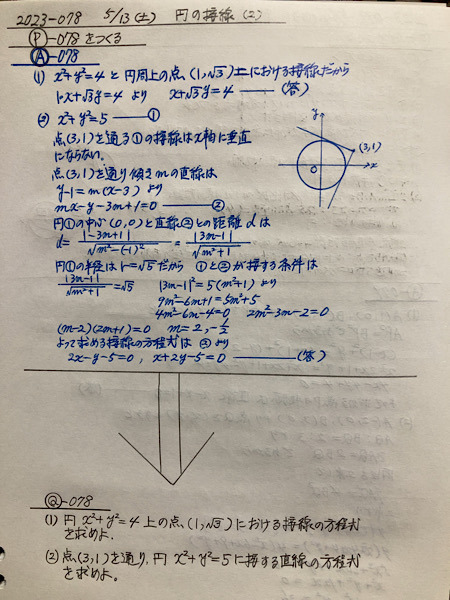 2023-078 5/13(土) 円の接線(2)
Ⓟ-078をつくる
Ⓐ-078
(1) x²+y²=4 と円周上の点(1,√3)における接線だから
1・x+√3y=4 より x+√3y=4 ——(答)
② x²+y²=5 ——①
点(3,1)を通る①の接線はx軸に垂直
にならない。
点(3,1)を通り傾きmの直線は
y-1=m(x-3) より
mx-y-3m+1=0 ——②
円①の中心(0,0)と直線②との距離dは
d=|-3m+1|/√m²-(-1)² = |3m-1|/√m²+1
円①の半径はr=√5だから ①と②が接する条件は
|3m-1|/√m²+1=√5 |3m-1|²=5(m²+1)より
9m²-6m+1=5m²+5
4m²-6m-4=0 2m²-3m-2=0
(m-2)(2m+1)=0 m=2,-1/2
よって求める接線の方程式は②より
2x-y-5=0, x+2y-5=0 ——(答)
y
(3,1)
O
x
Ⓠ-078
(1) 円 x²+y²=4 上の点(1,√3)における接線の方程式
を求めよ.
② 点(3,1)を通り,円 x²+y²=5に接する直線の方程式
を求めよ。